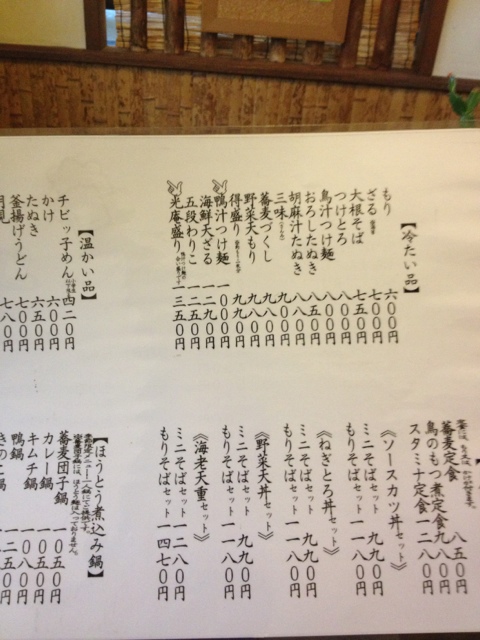 【冷たい品】
もり 六〇〇円
ざる 七〇〇円
大根そば 七五〇円
つけとろ 八〇〇円
鳥汁つけ麺 八〇〇円
おろしたぬき 八五〇円
胡麻汁たぬき 八〇〇円
三味 九〇〇円
蕎麦づくし
野菜天もり
得盛り
鴨汁つけ麺
海鮮天ざる
五段わりこ
光庵盛り 一三五〇円
【温かい品】
チビッ子めん 四二〇円
かけ 六〇〇円
たぬき 六五〇円
釜揚げうどん 七〇〇円
月見 七八〇円
蕎麦定食 八五〇円
鳥のもつ煮定食 九八〇円
スタミナ定食 一一二八〇円
《ソースカツ丼セット》
ミニそばセット 九九〇円
もりそばセット 一一八〇円
《ねぎとろ丼セット》
ミニそばセット 九九〇円
もりそばセット 一一八〇円
《野菜天丼セット》
ミニそばセット 九九〇円
もりそばセット 一一八〇円
《海老天重セット》
ミニそばセット 一二八〇円
もりそばセット 一四七〇円
【ほうとう煮込み鍋】
蕎麦団子鍋 一〇五〇円
カレー鍋 一〇五〇円
キムチ鍋 一〇八〇円
鴨鍋 一二五〇円
きのこ鍋